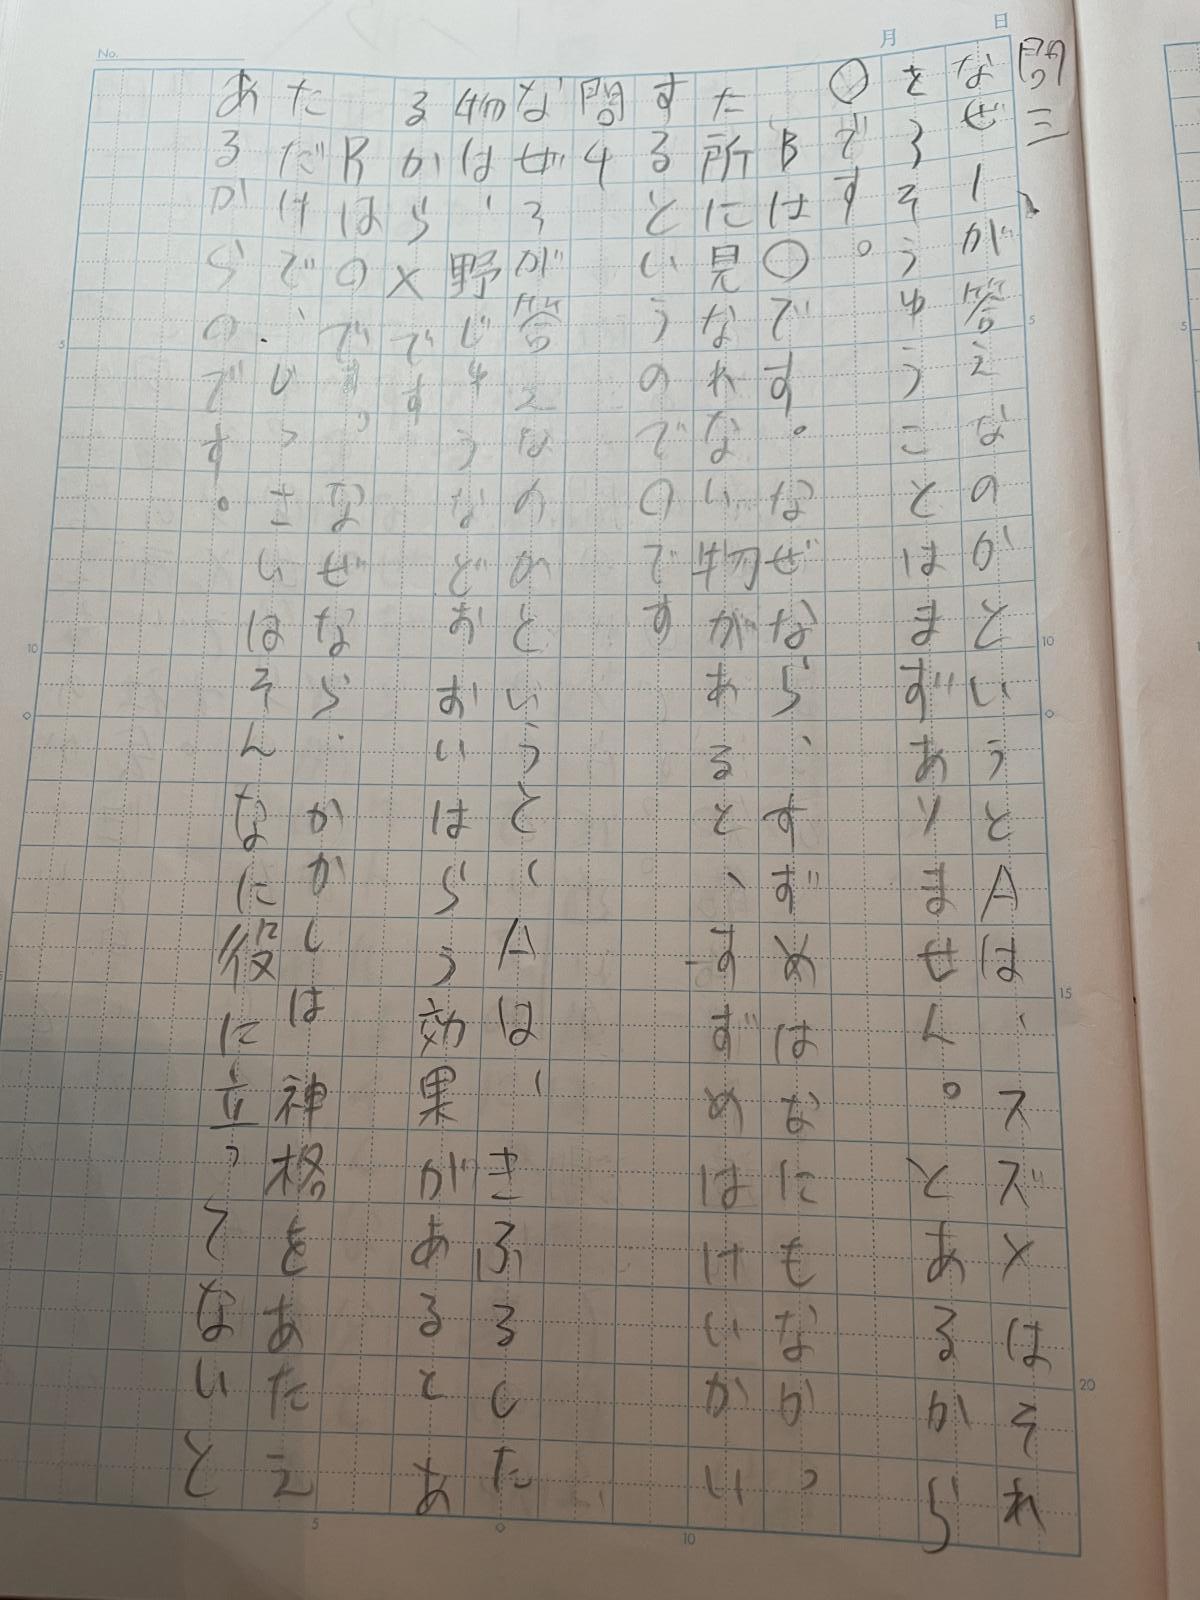 No.
月 日
問三、
なぜ1が答えなのかというとAは、スズメはそれ
をろそうゆうことはまずありません。とあるから
○です。
Bは○です。なぜなら、すずめはなにもなかっ
た所に見なれない物があると、すずめはけいかい
するというので○です
問4
なぜ3が答えなのかというと、Aは、さふるした
物は、野じゅうなどおおいはらう効果があるとあ
るから×です
Bは○です。なぜなら、かかしは神格をあたえ
ただけで、じっさいはそんなに役に立ってないと
あるから○です。